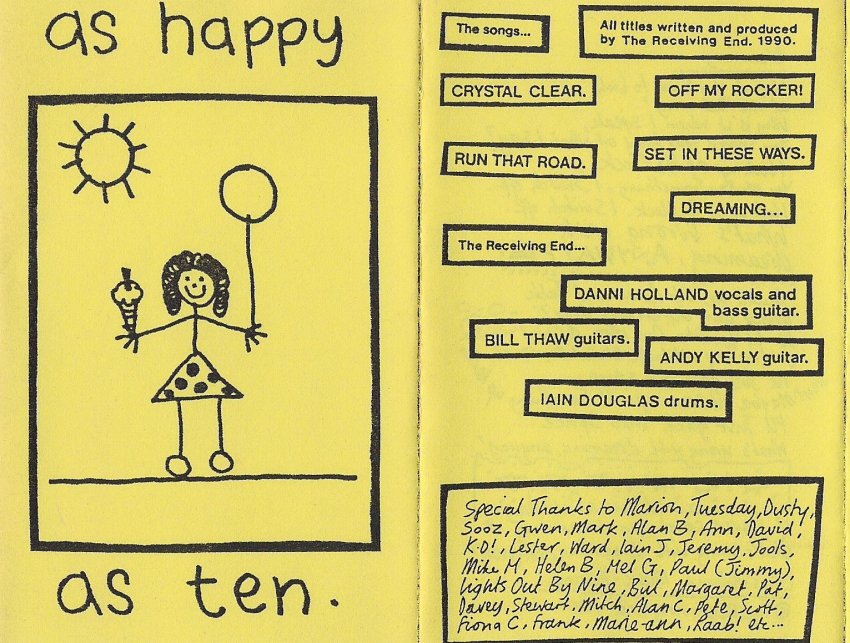 as happy
as ten.
The songs...
All titles written and produced
by The Receiving End. 1990.
CRYSTAL CLEAR.
OFF MY ROCKER!
RUN THAT ROAD.
SET IN THESE WAYS.
DREAMING...
The Receiving End...
DANNI HOLLAND vocals and
bass guitar.
BILL THAW guitars.
ANDY KELLY guitar.
IAIN DOUGLAS drums.
Special Thanks to Marion, Tuesday, Dusty,
Sooz, Gwen, Mark, Alan B, Ann, David,
K.D!, Lester, Ward, Iain J, Jeremy, Jools,
Mike M, Helen B, Mel G, Paul (Jimmy),
Lights Out By Nine, Bill, Margaret, Pat,
Davey, Stewart, Mitch, Alan C, Pete, Scott,
Fiona C, Frank, Marie-ann, Raab! etc...